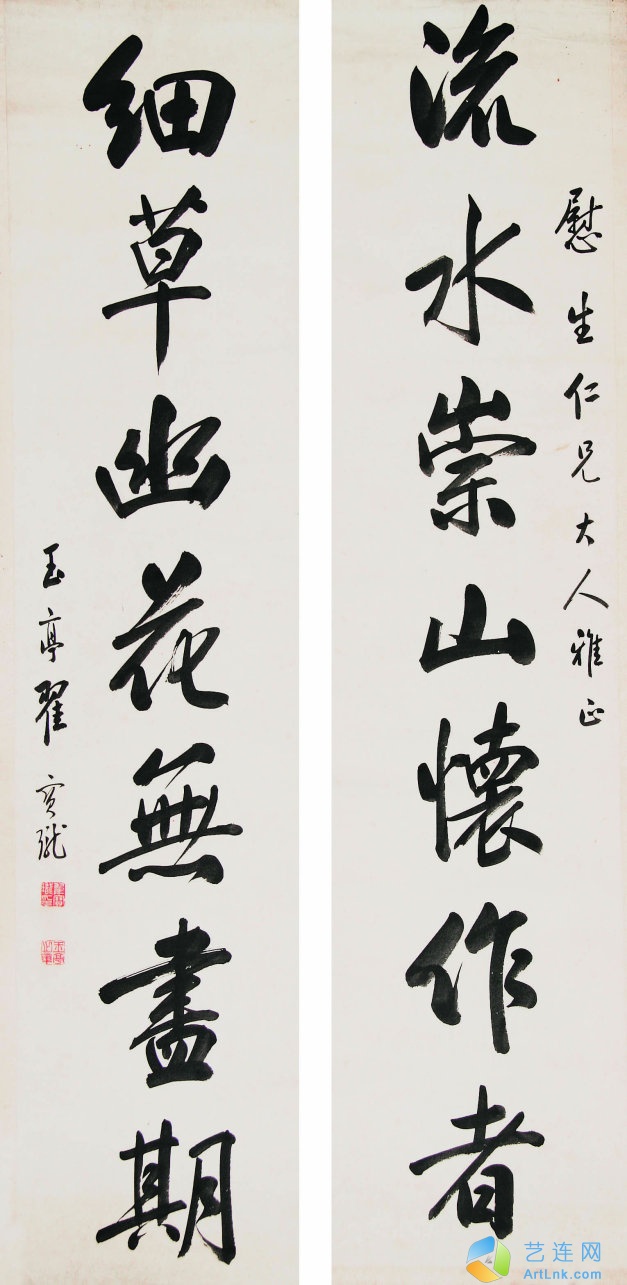 慰生仁兄大人雅正
流水崇山懷作者
細草幽花無盡期
玉亭翟
艺连网
ArtLnk.com